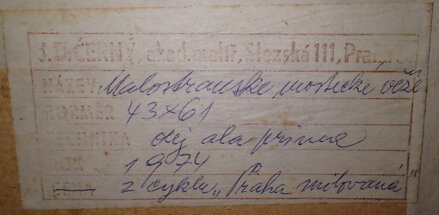 J.D.ČERNÝ, akad. malíř, Slezská 111, Pra
NÁZEV Malostranské mostecké věže
ROZMĚR 43x61
TECHNIKA olej ala prima
ROK 1974
CENA z cyklu „Praha milovaná"